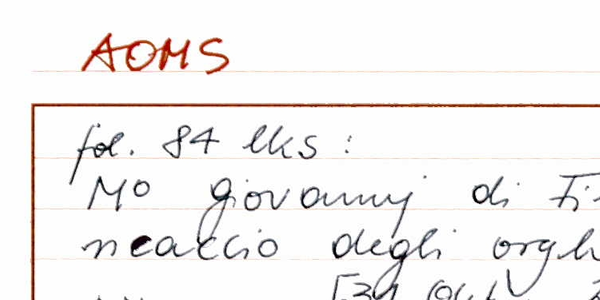 AOMS
fol. 84 lks:
Mo giovannj di
neaccio degli